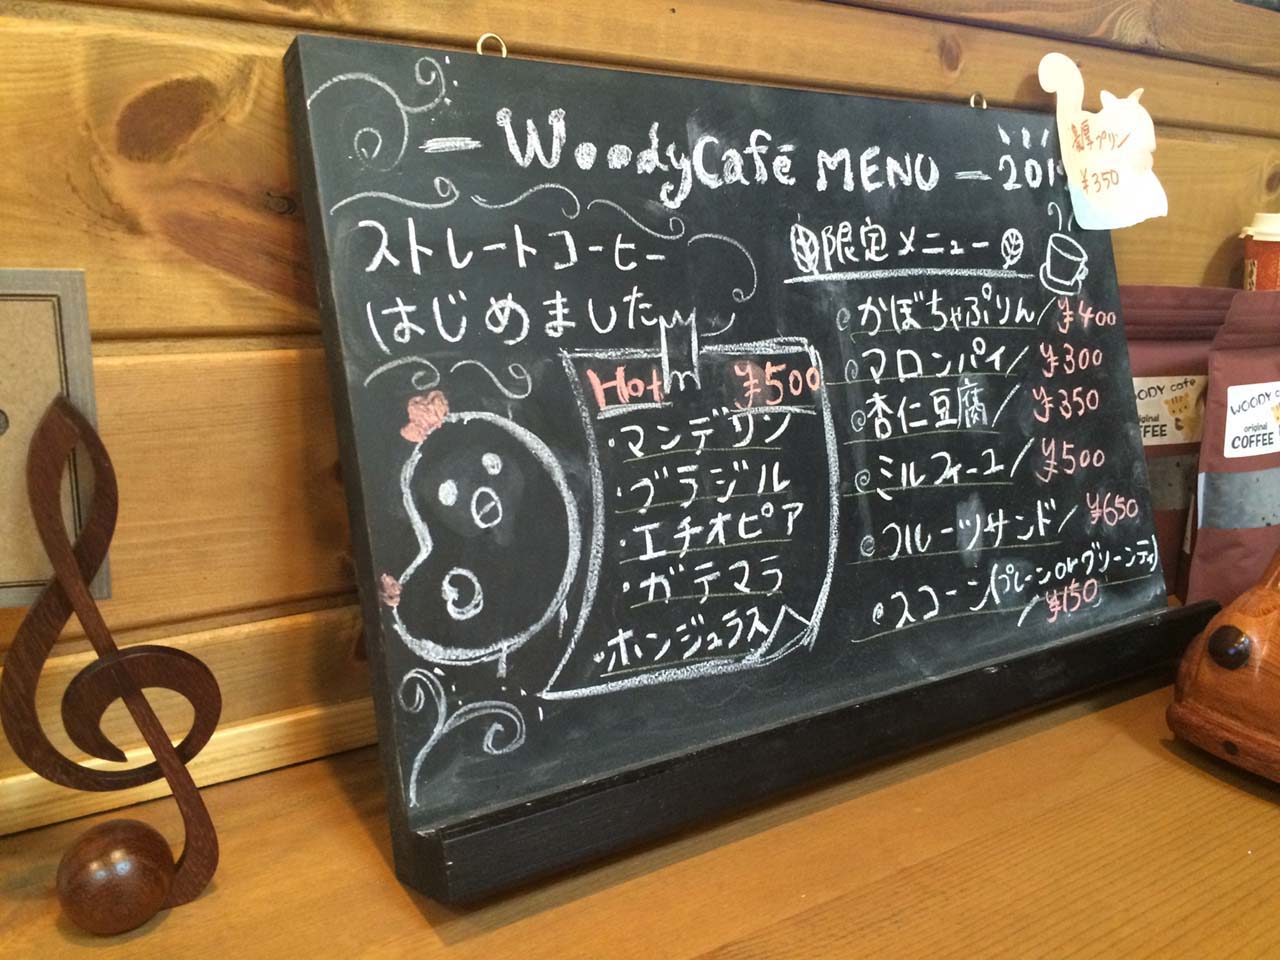 — Woody Café MENU — 201
濃厚プリン
¥350
ストレートコーヒー
はじめました
Hot ¥500
・マンデリン
・ブラジル
・エチオピア
・ガテマラ
・ホンジュラス
限定メニュー
かぼちゃぷりん/¥400
マロンパイ/¥300
杏仁豆腐/¥350
ミルフィーユ/¥500
フルーツサンド/¥650
スコーン(プレーンorグリーンティ)
/¥150
WOODY cafe
original
COFFEE
ODY cafe
FEE